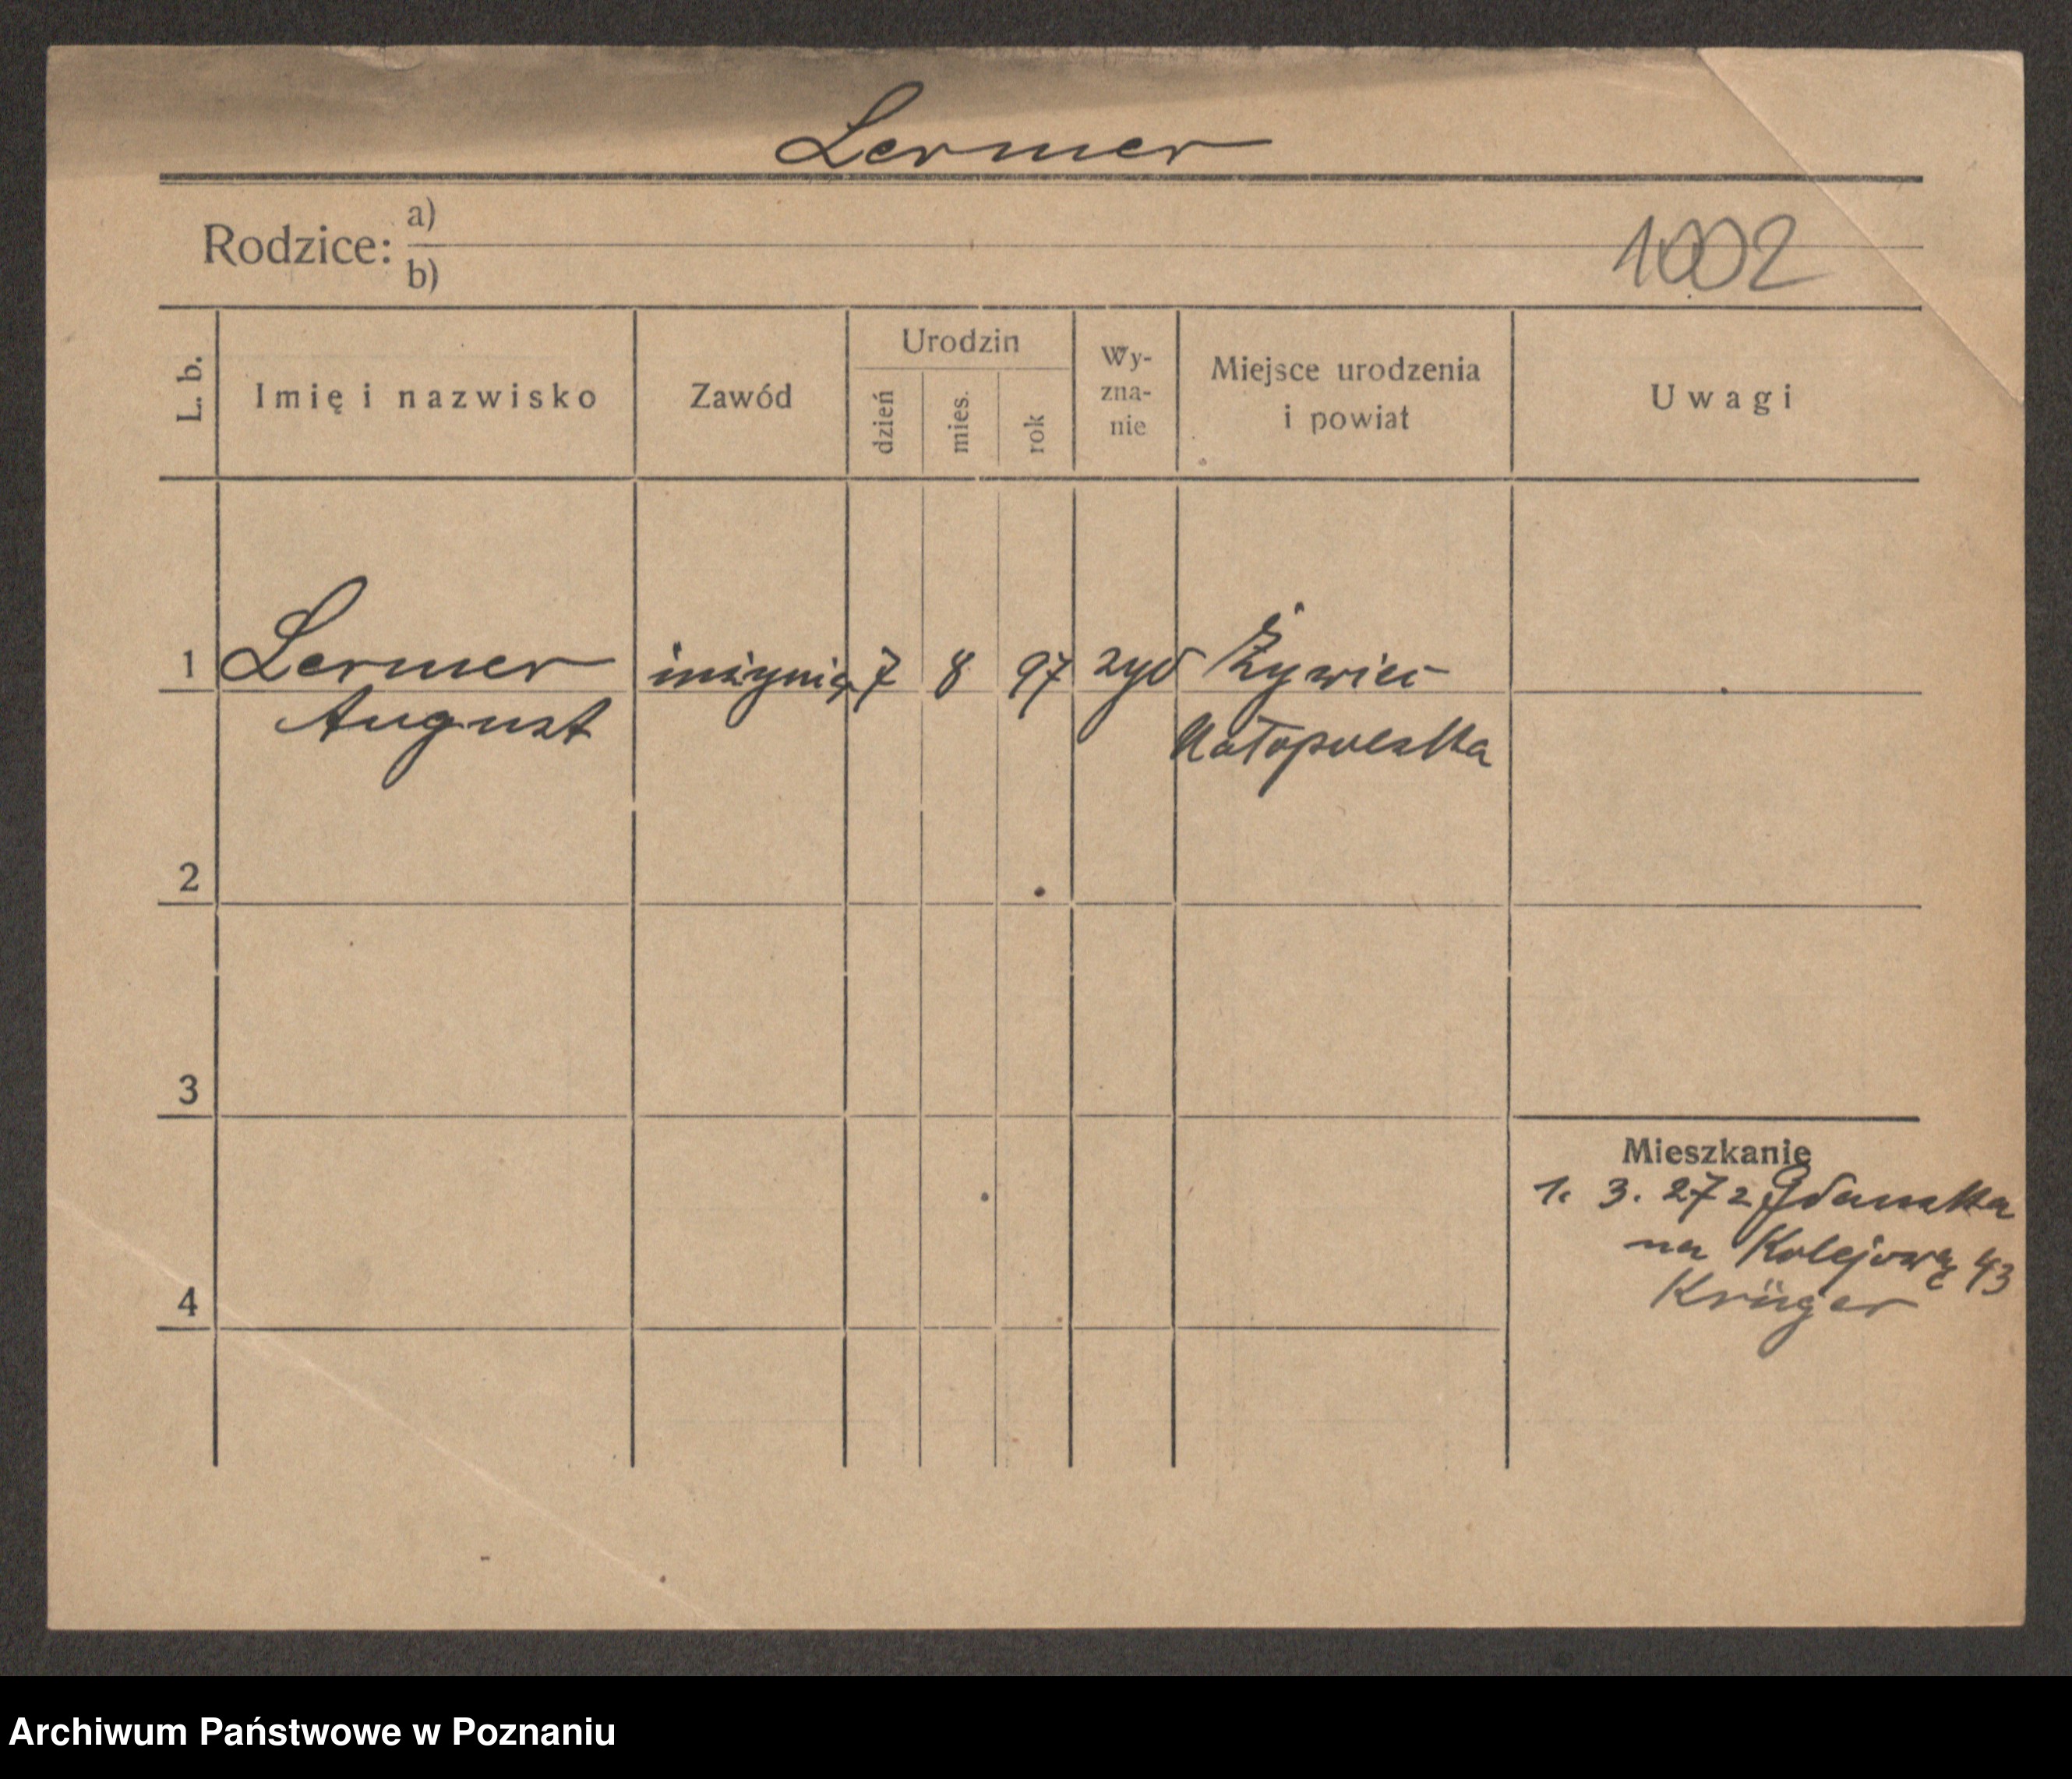 Lermer
Rodzice: a)
b)
1002
L. b.
Imię i nazwisko
Zawód
Urodzin
dzień
mies.
rok
Wy-
zna-
nie
Miejsce urodzenia
i powiat
Uwagi
1 Lermer inżynier 7 8 97 żyd Żywiec
August Małopolska
2
3
4
Mieszkanie
1. 3. 27 z Gdańska
na Kolejową 43
Krüger
Archiwum Państwowe w Poznaniu